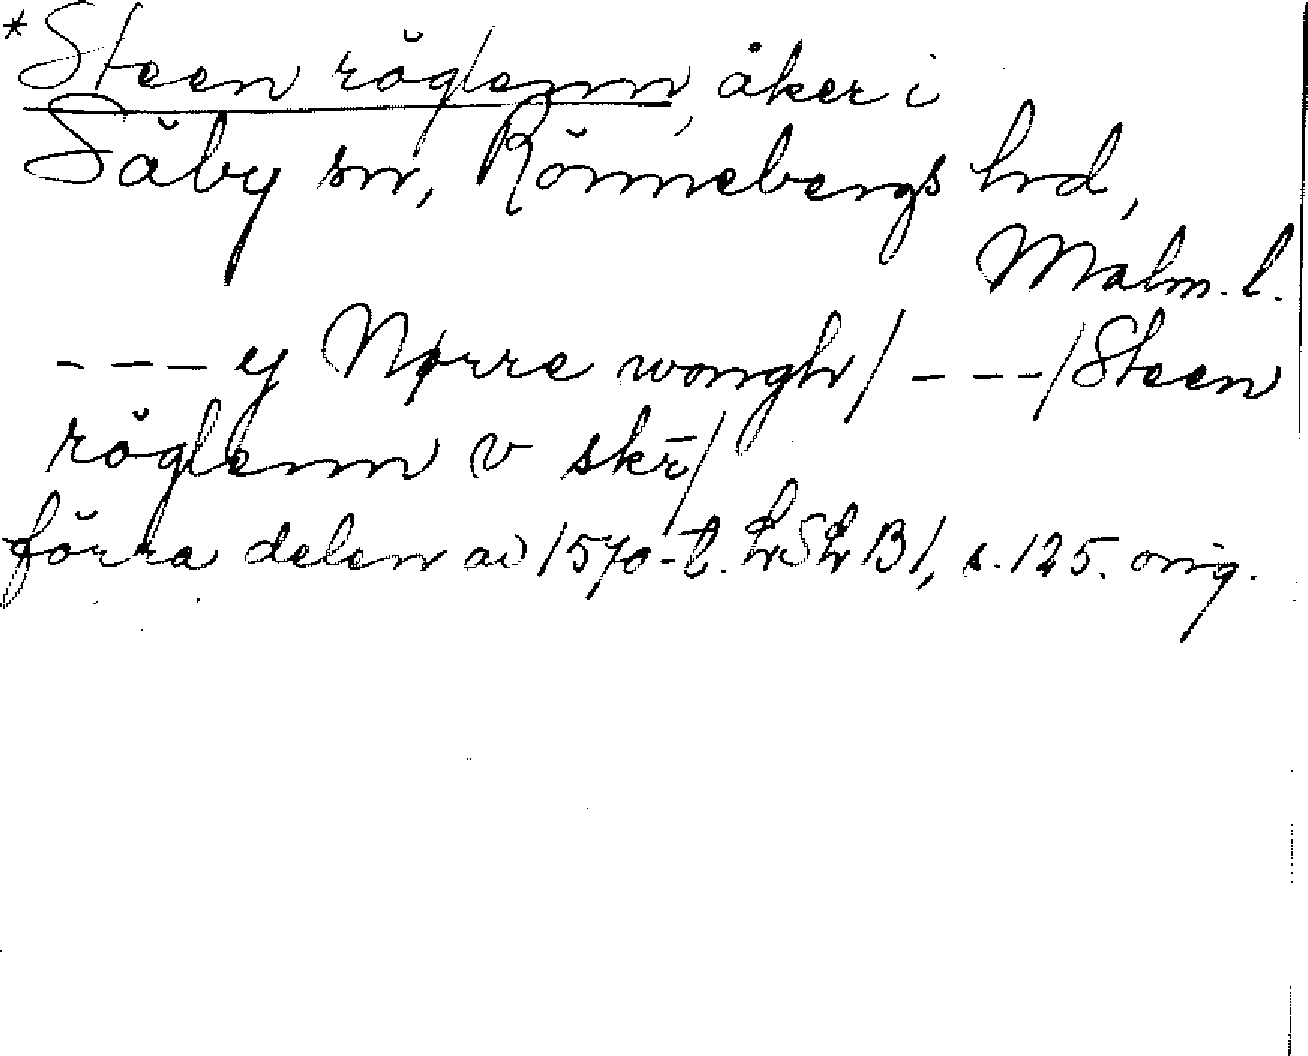 *Steen röglenn, åker i
Säby sn, Rönnebergs hrd,
Malm. l.
---y Nørre wongh/---/Steen
röglenn v skr̄/
förra delen av 1570-t. LrSk B1, s. 125. orig.